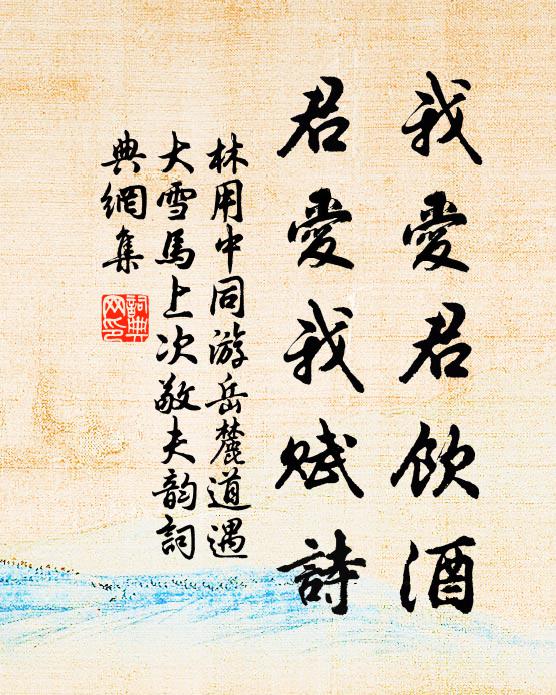 我愛君飲酒
君愛我賦詩
林用中同游岳麓道遇
大雪馬上次敬夫韵詞
典網集
詞典
网印